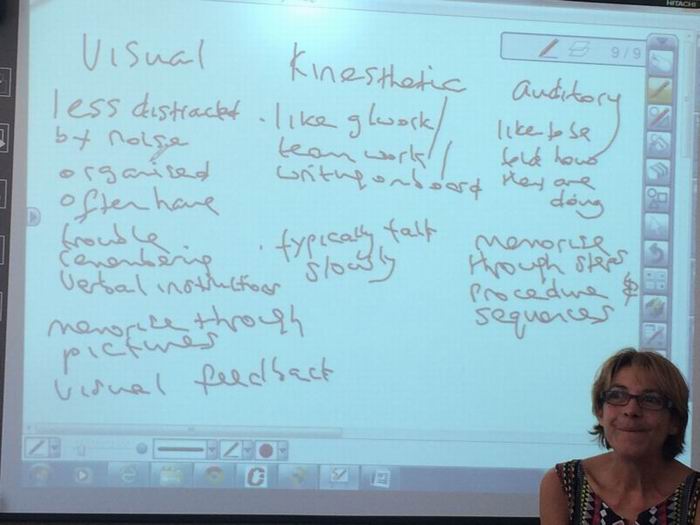 HITACHI
9/9
Visual
less distracted
by noise
organised
often have
trouble
remembering
verbal instructions
memorise through
pictures
visual feedback
Kinesthetic
· like g/work/
team work/
writing on board
· typically talk
slowly
auditory
like to be
told how
they are
doing
memorise
through steps
procedure &
sequences